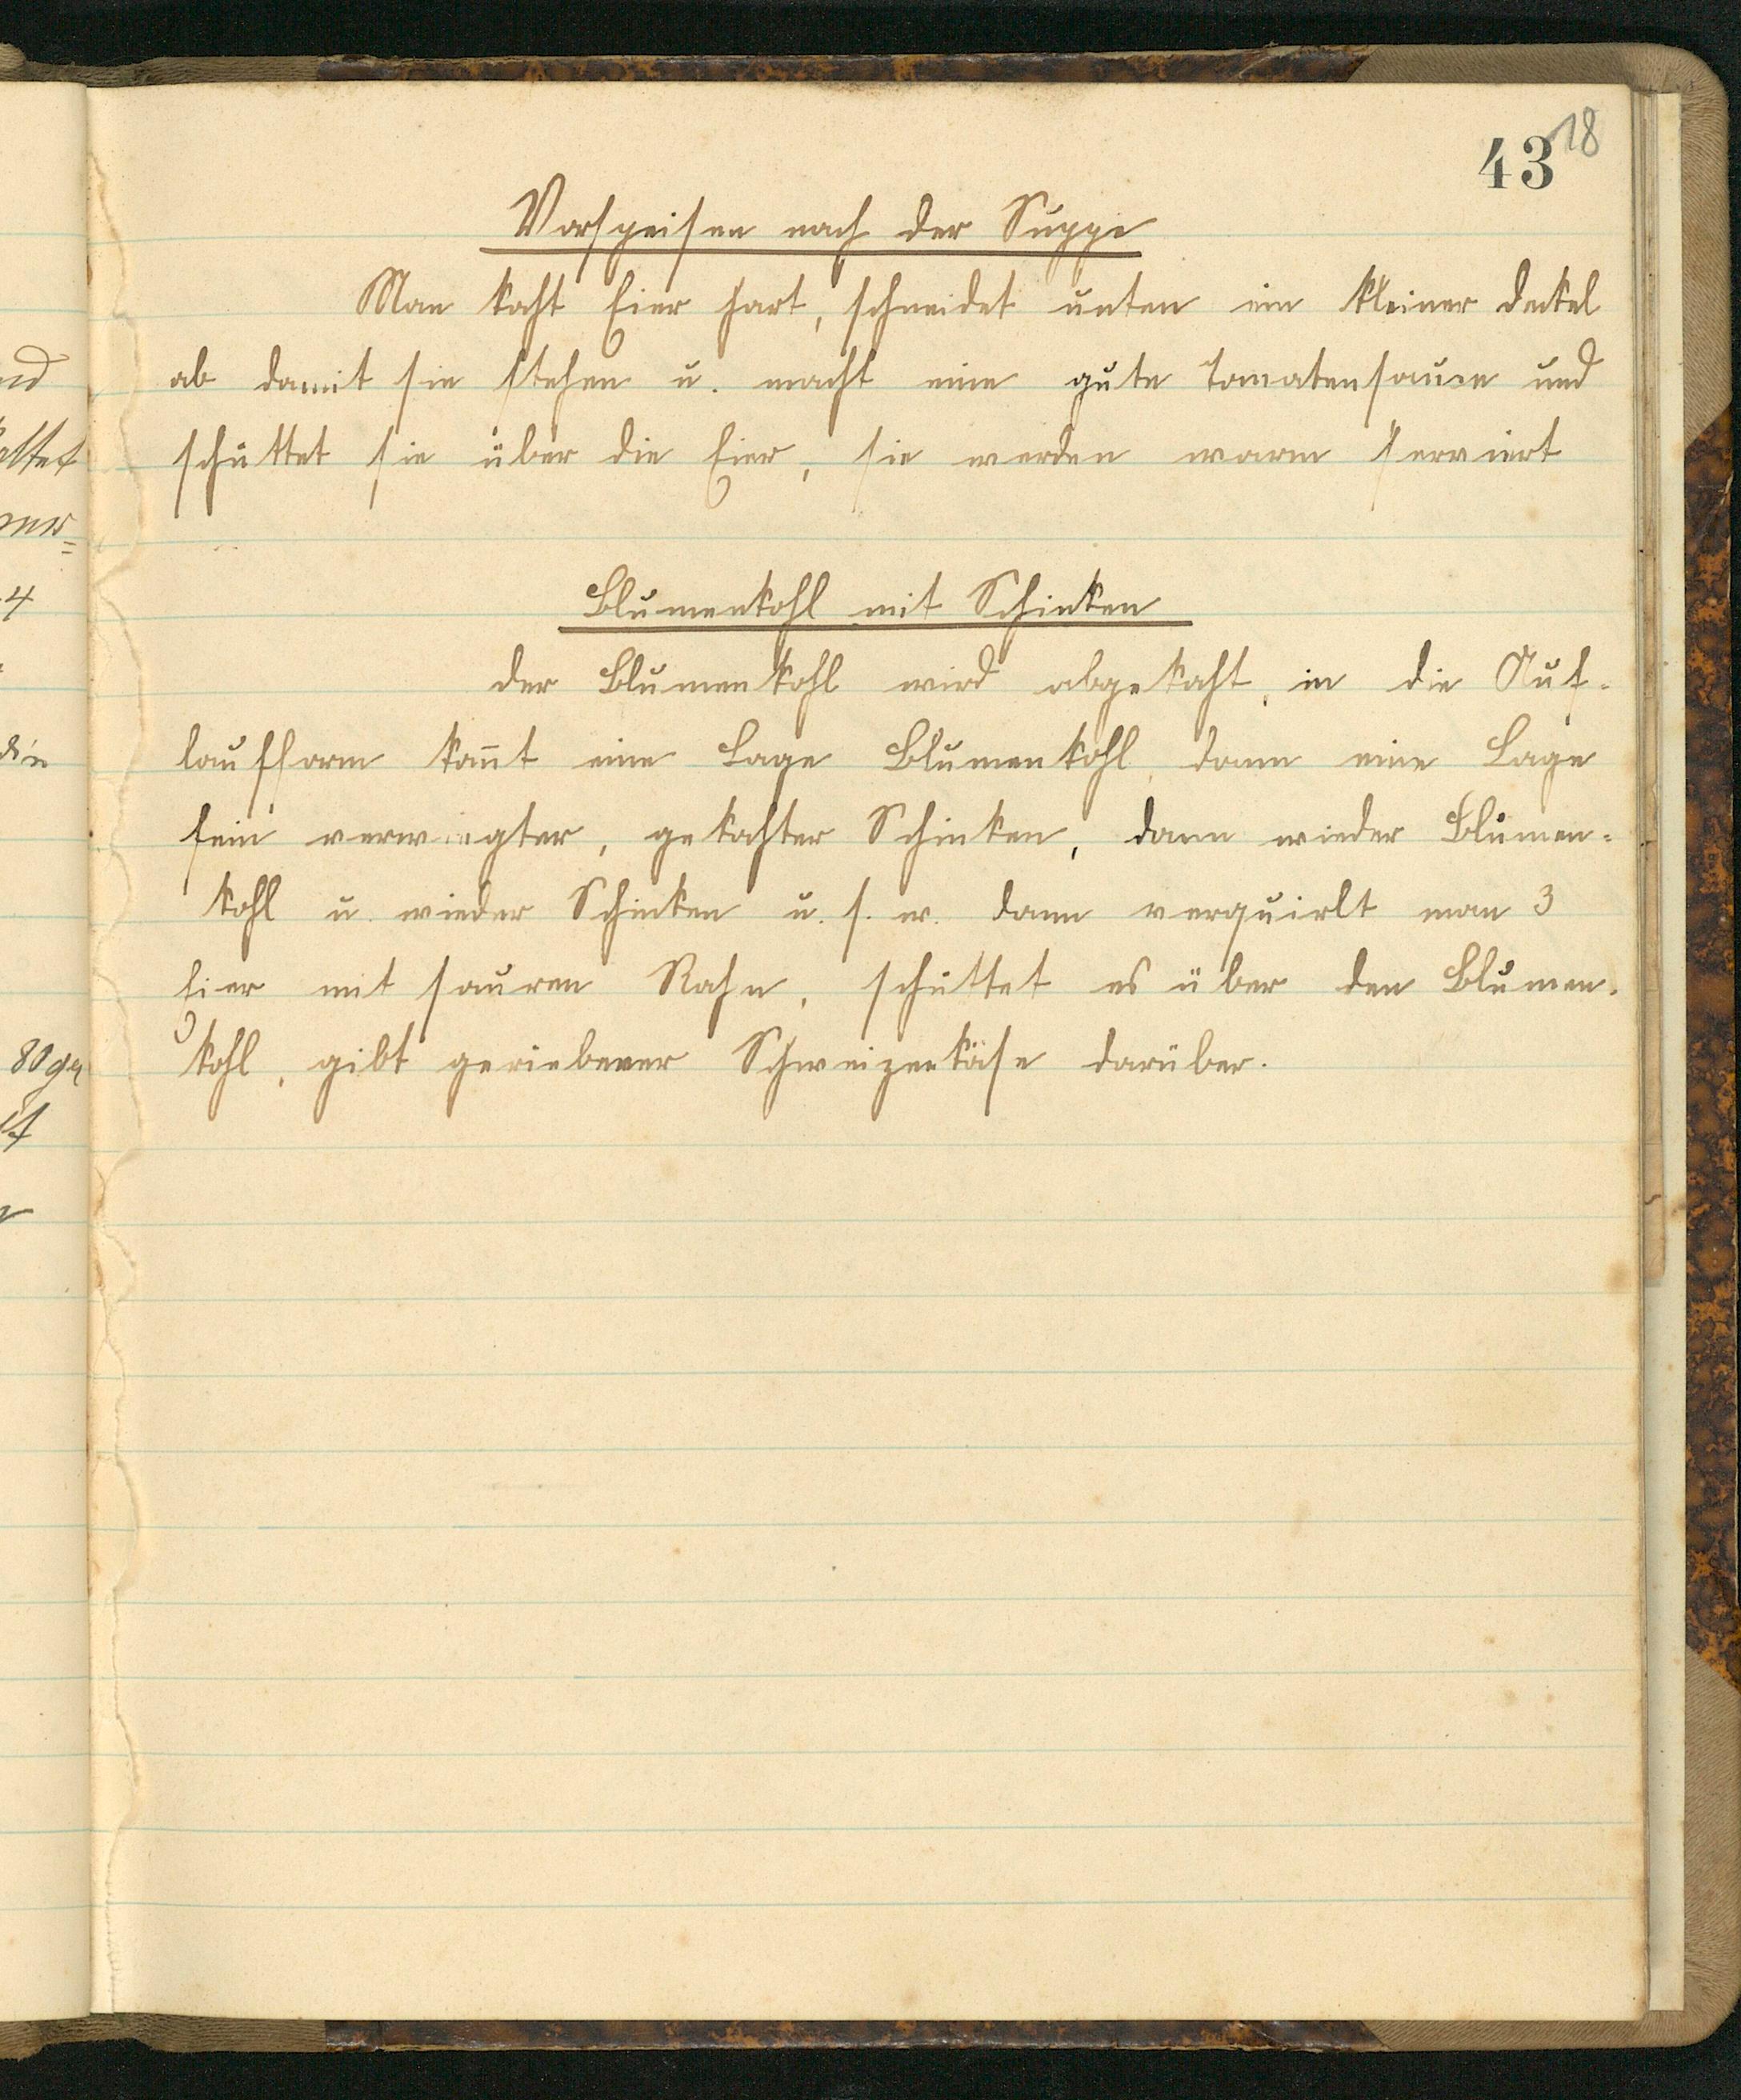 43 18
Vorspeisen nach der Suppe
Man kocht Eier hart, schneidet unten ein kleiner Deckel
ab damit sie stehen u. macht eine gute Tomatensauce und
schüttet sie über die Eier, sie werden warm serviert
Blumenkohl mit Schinken
Der Blumenkohl wird abgekocht, in die Auf-
laufform kom̄t eine Lage Blumenkohl, dann eine Lage
fein verwiegter, gekochter Schinken, dann wieder Blumen-
kohl u. wieder Schinken u. s. w. dann verquirlt man 3
Eier mit sauren Rahm, schüttet es über den Blumen-
kohl, gibt geriebener Schweizerkäse darüber.
80 gr